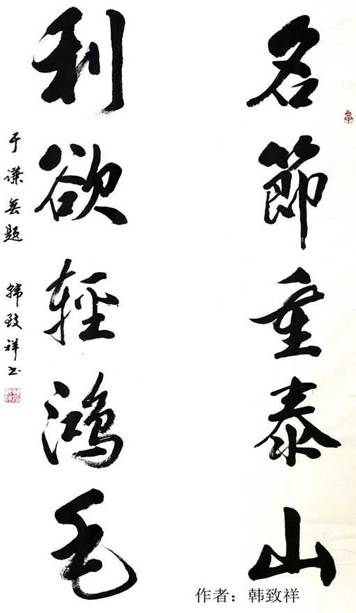 名節重泰山
利欲輕鴻毛
于謙無題 韩致祥书
作者：韩致祥